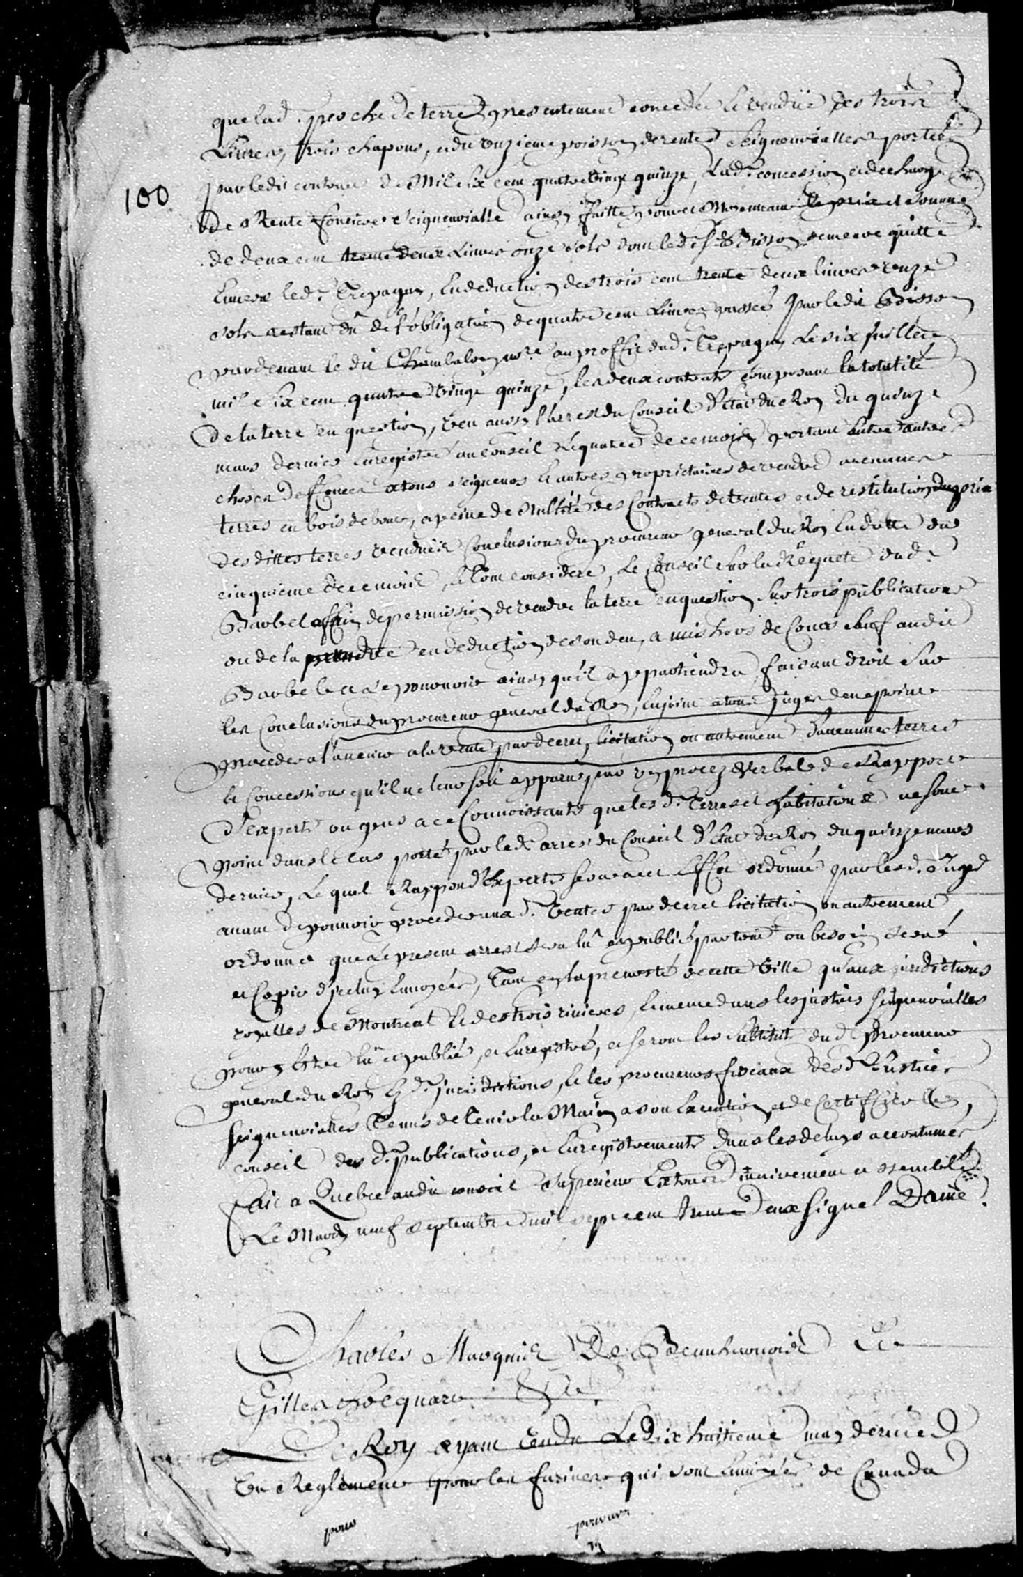 que lad. perche de terre presentement concedée Le vendüe des trois
Livres, trois chapons, et du onzieme poisson de rentes Seigneurialles portée
par ledit contract de Mil six cent quatre Vingt quinze, Lad. concession et decharge
100
de Rente fonciere Seigneurialle ainsy faitte
de deux cent trente deux Livres onze sols dont led. Sr. Brisson demeure quitte
Envers led. Trepagny, En deduction des trois cent trente deux livres onze
sols restant dû de l'obligation de quatre cent Livres passée par ledit Brisson
pardevant le dit Chambalon notre au proffit dud. Trepagny Le six Juillet
mil six cent quatre Vingt quinze, les deux contrats composant la totalité
de la terre en question, Veu aussy l'arest du Conseil d'Etat du Roy du quinze
mars dernier Enregistré au Conseil de ce mois portant entre autres
choses deffences a tous seigneurs et autres proprietaires de vendre aucunes
terres en bois de bout, a peine de Nullité des Contracts de ventes et de restitution du prix
des dittes terres vendües Conclusions du procureur general du Roy En datte du
cinquieme de ce mois, Le tout consideré, Le Conseil sur la Requete dud.
Barbel affin de permission de vendre la terre en question sur trois publications
ou de la prendre en deduction de son deu, a mis hors de Cour sauf audit
Barbel a se pourvoir ainsy qu'il appartiendra faisant droit sur
les Conclusions du procureur general du Roy, Enjoint a tous juges de ne point
proceder a l'avenir a la vente par decret, licitation ou autrement d'aucunes terres
et Concessions qu'il ne leur soit apparu par un procez Verbal de Rapport
d'experts ou gens a ce Connoissants que les d. Terres et habitations ne sont
point dans le cas porté par led. arrest du Conseil d'Etat du Roy du quinze mars
dernier, Lequel Rapport d'Experts sera a cet Effet ordonné par les d. Juges
avant de pouvoir proceder aux d. Ventes par decret licitation ou autrement
ordonne que le present arrest sera lû et publié partout ou besoin sera
et Copies d'iceluy Envoyées, Tant en la prevosté de cette Ville qu'aux jurisdictions
royalles de Montreal et des trois rivieres, et meme dans les justices seigneurialles
pour y Estre lû et publié, et Enregistré, et seront les substituts du d. procureur
general du Roy Es d. jurisdictions, et les procureurs fiscaux des d. Justices
seigneurialles Tenus de tenir la Main a son Execution et de Certiffier le
conseil des d. publications, et Enregistrements dans les delays accoutumés
Fait a Quebec audit conseil superieur Extraordinairement assemblé
Le Mardy neuf septembre mil sept cent trente deux Signé Daine
Charles Marquis De Beauharnois &c
Gilles hocquart &c.
Le Roy ayant rendu Le dix huitieme may dernier
Un Reglement pour les farines qui sont Envoyées de Canada
pour
pouvoir